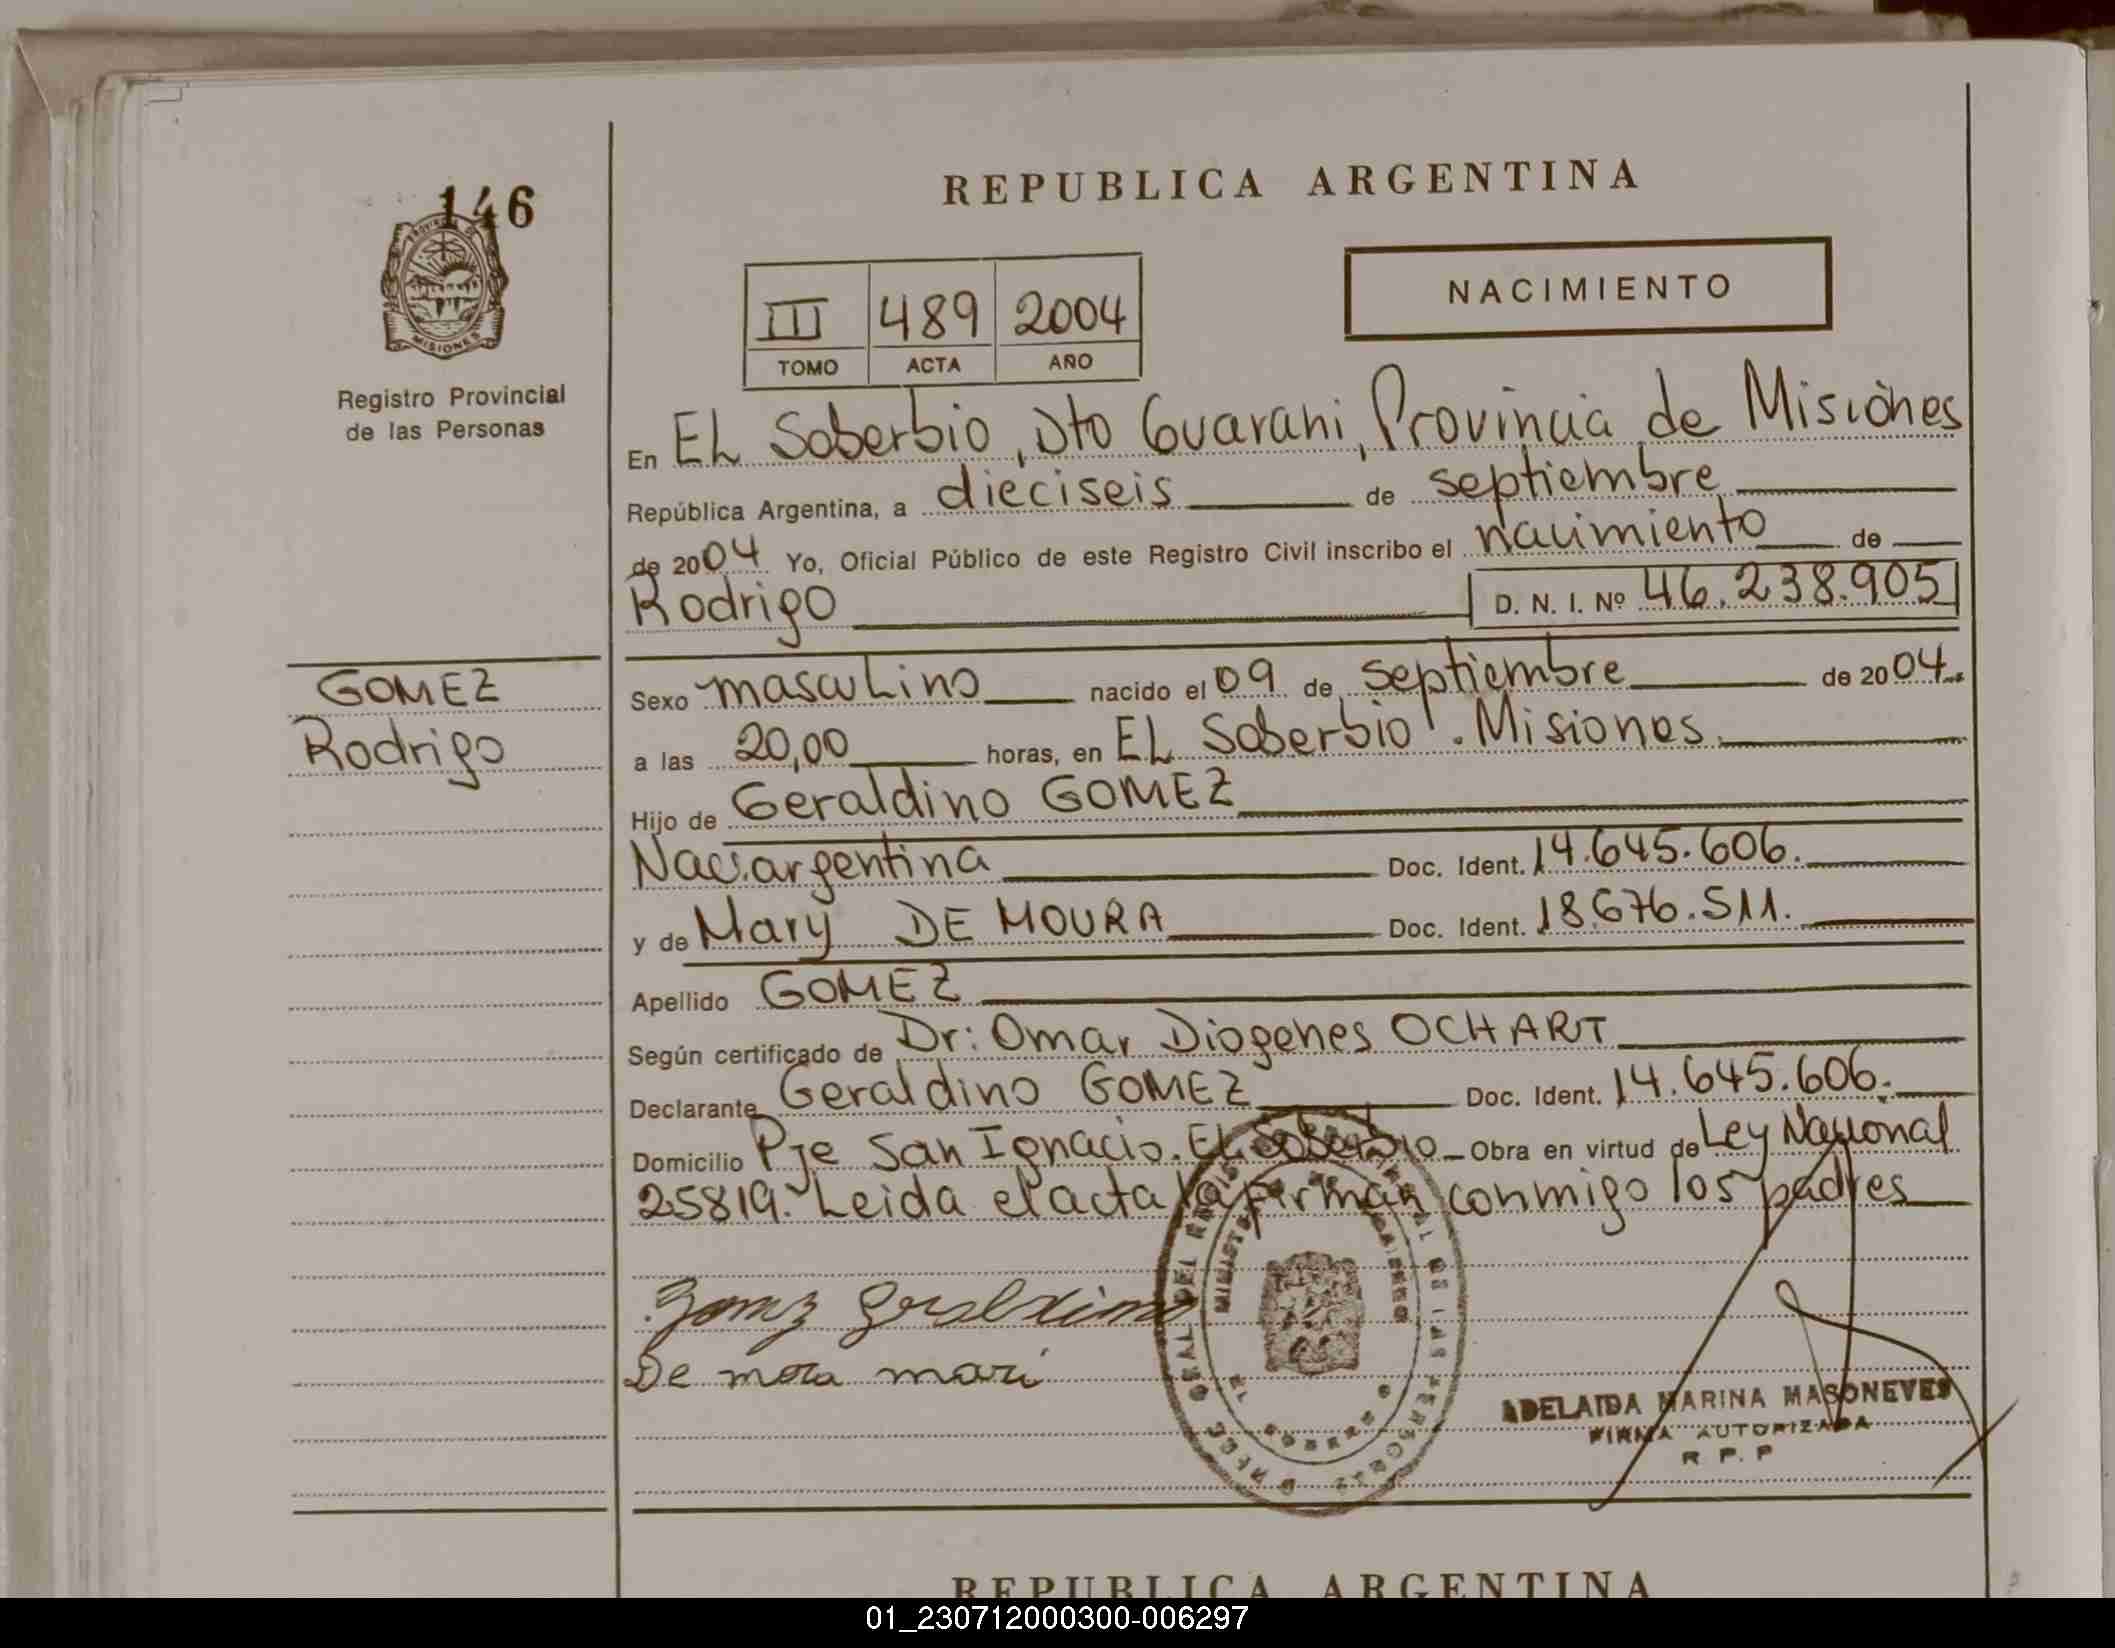 146
MISIONES
Registro Provincial
de las Personas
REPUBLICA ARGENTINA
III 489 2004
TOMO ACTA AÑO
NACIMIENTO
En EL Soberbio, Dto Guarani, Provincia de Misiones
República Argentina, a dieciseis de septiembre
de 2004 Yo, Oficial Público de este Registro Civil inscribo el nacimiento de
Rodrigo D. N. I. Nº 46.238.905
GOMEZ
Rodrigo
Sexo masculino nacido el 09 de septiembre de 2004
a las 20,00 horas, en EL Soberbio. Misiones.
Hijo de Geraldino GOMEZ
Nac. argentina Doc. Ident. 14.645.606.
y de Mary DE MOURA Doc. Ident. 18.676.511.
Apellido GOMEZ
Según certificado de Dr: Omar Diogenes OCHART
Declarante Geraldino GOMEZ Doc. Ident. 14.645.606.
Domicilio Pje San Ignacio. EL Soberbio Obra en virtud de Ley Nacional
25819. Leida el acta la firman conmigo los padres
Gomz Geraldino
De mora mari
ADELAIDA MARINA MASONEVES
FIRMA AUTORIZADA
R. P. P
REPUBLICA ARGENTINA
01_230712000300-006297